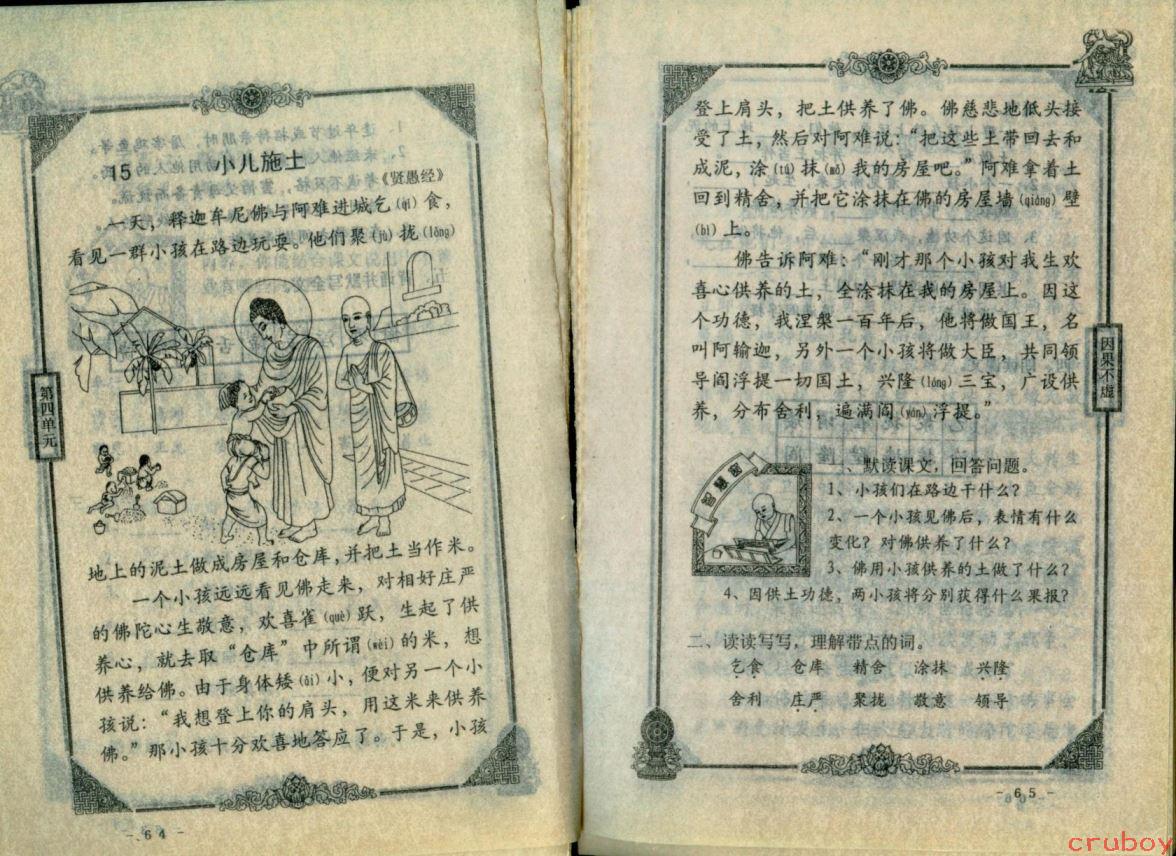 15 小儿施土
《贤愚经》
一天，释迦牟尼佛与阿难进城乞(qǐ)食，
看见一群小孩在路边玩耍。他们聚(jù)拢(lǒng)
第四单元
地上的泥土做成房屋和仓库，并把土当作米。
一个小孩远远看见佛走来，对相好庄严
的佛陀心生敬意，欢喜雀(què)跃，生起了供
养心，就去取“仓库”中所谓(wèi)的米，想
供养给佛。由于身体矮(ǎi)小，便对另一个小
孩说：“我想登上你的肩头，用这米来供养
佛。”那小孩十分欢喜地答应了。于是，小孩
- 64 -
登上肩头，把土供养了佛。佛慈悲地低头接
受了土，然后对阿难说：“把这些土带回去和
成泥，涂(tú)抹(mǒ)我的房屋吧。”阿难拿着土
回到精舍，并把它涂抹在佛的房屋墙(qiáng)壁
(bì)上。
佛告诉阿难：“刚才那个小孩对我生欢
喜心供养的土，全涂抹在我的房屋上。因这
个功德，我涅槃一百年后，他将做国王，名
叫阿输迦，另外一个小孩将做大臣，共同领
导阎浮提一切国土，兴隆(lóng)三宝，广设供
养，分布舍利，遍满阎(yán)浮提。”
因果不虚
智慧园
一、默读课文，回答问题。
1、小孩们在路边干什么？
2、一个小孩见佛后，表情有什么
变化？对佛供养了什么？
3、佛用小孩供养的土做了什么？
4、因供土功德，两小孩将分别获得什么果报？
二、读读写写，理解带点的词。
乞食 仓库 精舍 涂抹 兴隆
舍利 庄严 聚拢 敬意 领导
- 65 -
cruboy